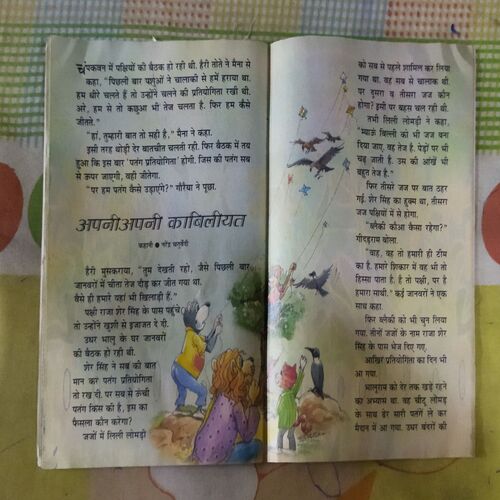 चंपकवन में पक्षियों की बैठक हो रही थी. हैरी तोते ने मैना से
कहा, "पिछली बार पशुओं ने चालाकी से हमें हराया था.
हम धीरे चलते हैं तो उन्होंने चलने की प्रतियोगिता रखी थी.
अरे, हम से तो कछुआ भी तेज चलता है. फिर हम कैसे
जीतते."
"हां, तुम्हारी बात तो सही है," मैना ने कहा.
इसी तरह थोड़ी देर बातचीत चलती रही. फिर बैठक में तय
हुआ कि इस बार 'पतंग प्रतियोगिता' होगी. जिस की पतंग सब
से ऊपर जाएगी, वही जीतेगा.
"पर हम पतंग कैसे उड़ाएंगे?" गौरैया ने पूछा.
अपनीअपनी काबिलीयत
कहानी • नरेंद्र चतुर्वेदी
हैरी मुसकराया, "तुम देखती रहो, जैसे पिछली बार
जानवरों में चीता तेज दौड़ कर जीत गया था.
वैसे ही हमारे यहां भी खिलाड़ी हैं."
पक्षी राजा शेर सिंह के पास पहुंचे
तो उन्होंने खुशी से इजाजत दे दी.
उधर भालू के घर जानवरों
की बैठक हो रही थी.
शेर सिंह ने सब की बात
मान कर पतंग प्रतियोगिता
तो रख दी. पर सब से ऊंची
पतंग किस की है, इस का
फैसला कौन करेगा?
जजों में लिली लोमड़ी
को सब से पहले शामिल कर लिया
गया था. वह सब से चालाक थी.
पर दूसरा व तीसरा जज कौन
होगा? इसी पर बहस चल रही थी.
तभी लिली लोमड़ी ने कहा,
"म्याऊं बिल्ली को भी जज बना
दिया जाए, वह तेज है. पेड़ों पर भी
चढ़ जाती है. उस की आंखें भी
बहुत तेज हैं."
फिर तीसरे जज पर बात ठहर
गई. शेर सिंह का हुक्म था, तीसरा
जज पक्षियों में से होगा.
"ब्लैकी कौआ कैसा रहेगा?"
गीदड़राम बोला.
"वाह, वह तो हमारी ही टीम
का है. हमारे शिकार में वह भी तो
हिस्सा पाता है. है तो पक्षी, पर है
हमारा साथी." कई जानवरों ने एक
साथ कहा.
फिर ब्लैकी को भी चुन लिया
गया. तीनों जजों के नाम राजा शेर
सिंह के पास भेज दिए गए.
आखिर प्रतियोगिता का दिन भी
आ गया.
भालूराम को देर तक खड़े रहने
का अभ्यास था. वह चीटू लोमड़
के साथ ढेर सारी पतंगें ले कर
मैदान में आ गया. उधर बंदरों की